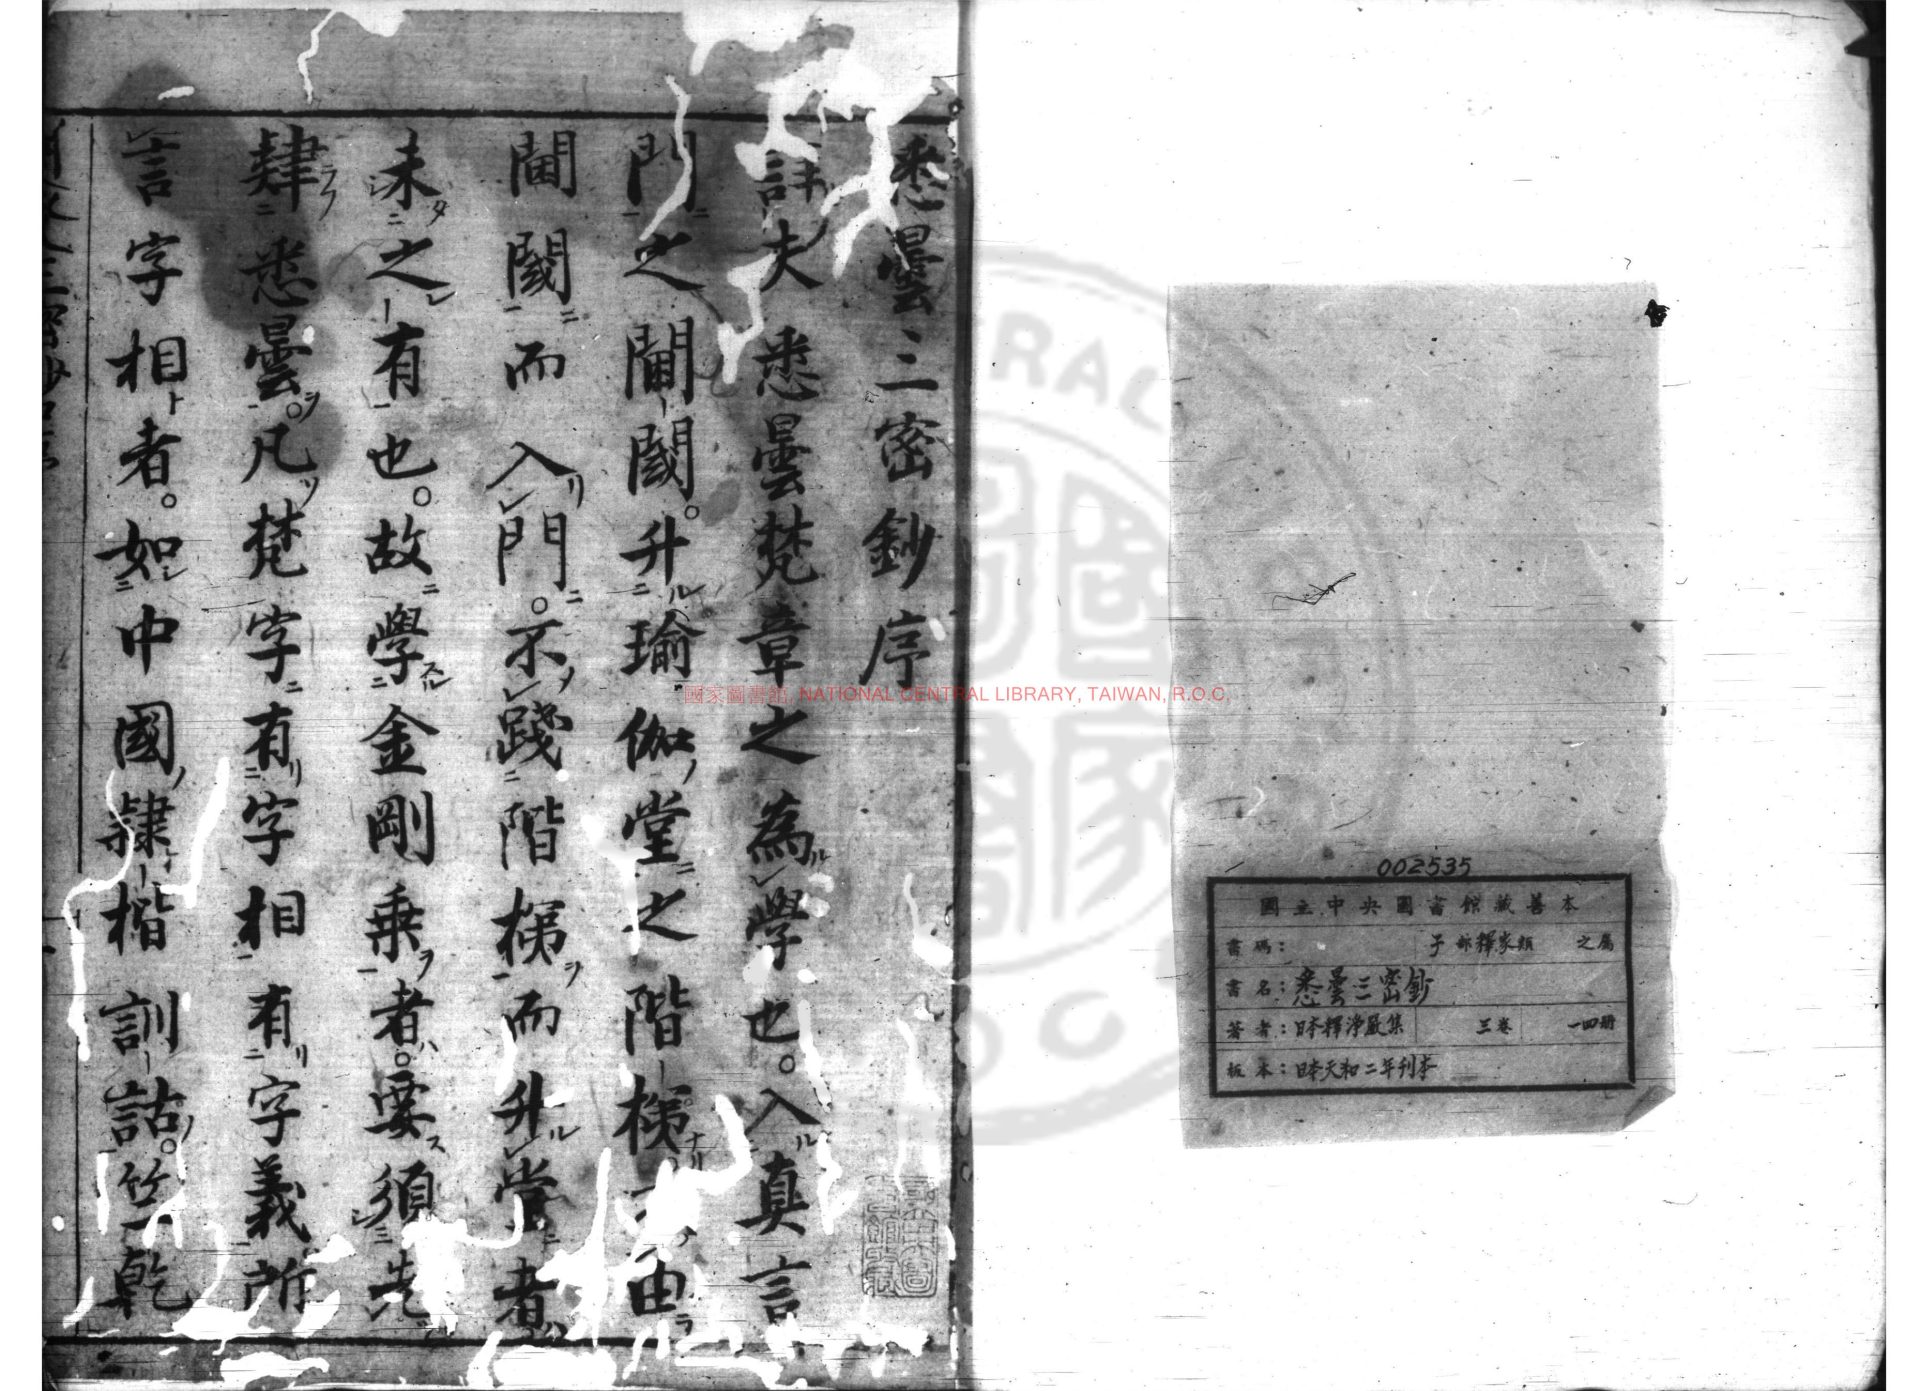 002535
國立中央圖書館藏善本
書碼： 子部釋家類 之屬
書名：悉曇三密鈔
著者：日本釋淨嚴集 三卷 一四册
板本：日本天和二年刊本
國家圖書館, NATIONAL CENTRAL LIBRARY, TAIWAN, R.O.C,
悉曇三密鈔序
詳夫悉曇梵章之為學也。入真言
門之閫閾。升瑜伽堂之階梯 由
閫閾而入門。不踐階梯而升堂者
未之有也。故學金剛乗者。要須先
肄悉曇。凡梵字有字相有字義所
言字相者。如中國隸楷訓詁。竺乾